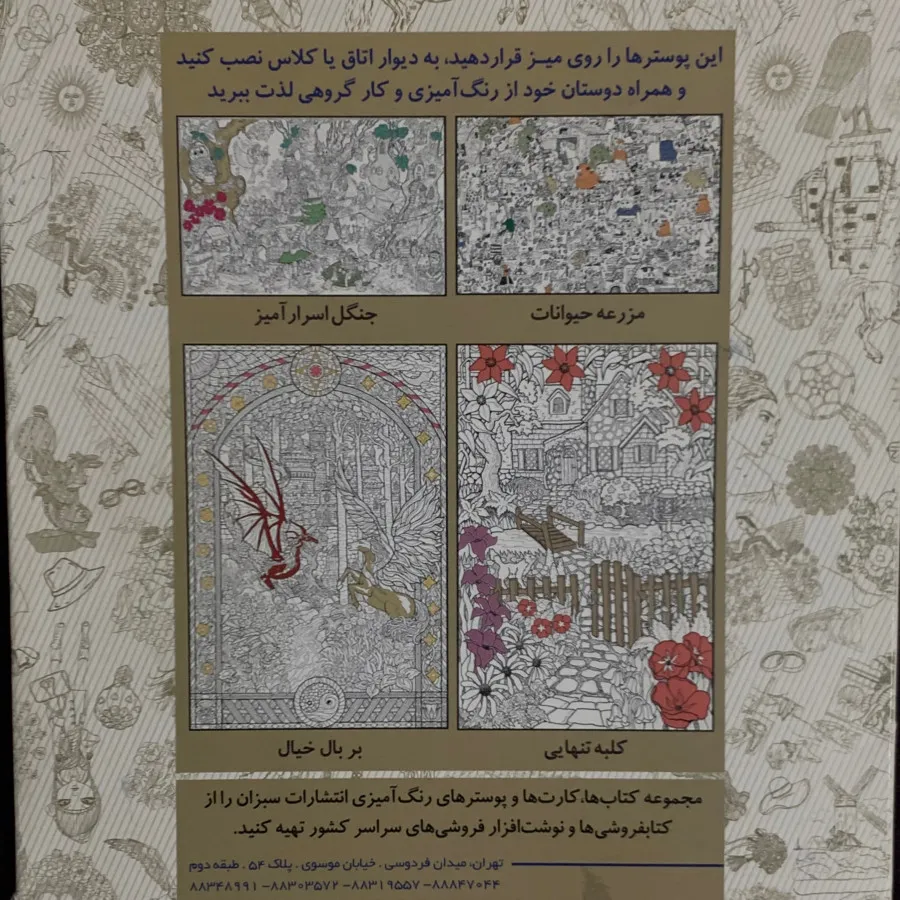 این پوسترها را روی میـز قراردهید، به دیوار اتاق یا کلاس نصب کنید
و همراه دوستان خود از رنگ‌آمیزی و کار گروهی لذت ببرید
مزرعه حیوانات
جنگل اسرارآمیز
کلبه تنهایی
بر بال خیال
مجموعه کتاب‌ها،کارت‌ها و پوسترهای رنگ‌آمیزی انتشارات سبزان را از
کتابفروشی‌ها و نوشت‌افزار فروشی‌های سراسر کشور تهیه کنید.
تهران، میدان فردوسی . خیابان موسوی . پلاک ۵۴ . طبقه دوم
۸۸۳۴۸۹۹۱ –۸۸۳۰۳۵۷۲ –۸۸۳۱۹۵۵۷ –۸۸۸۴۷۰۴۴